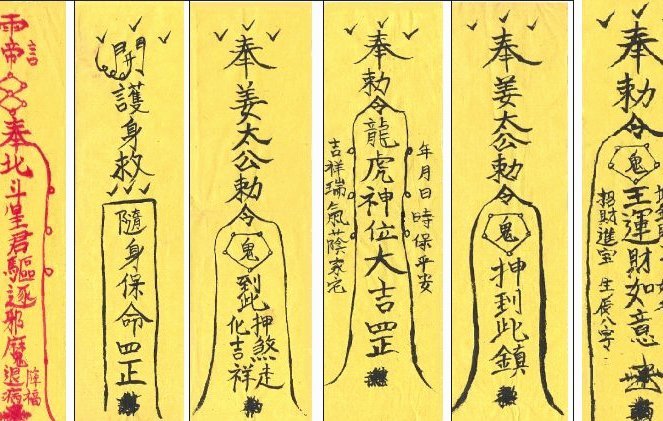 雨帝
言
奉北斗星君驅逐邪魔退病
降福
開護身救
隨身保命四正
奉姜太公勅令
鬼
到此
押煞走
化吉祥
奉勅令
龍虎神位大吉四正
年月日時保平安
吉祥瑞氣蔭家宅
奉姜太公勅令
鬼
押到此鎮
奉勅令
鬼
王運財如意
招財進宝
生辰八字